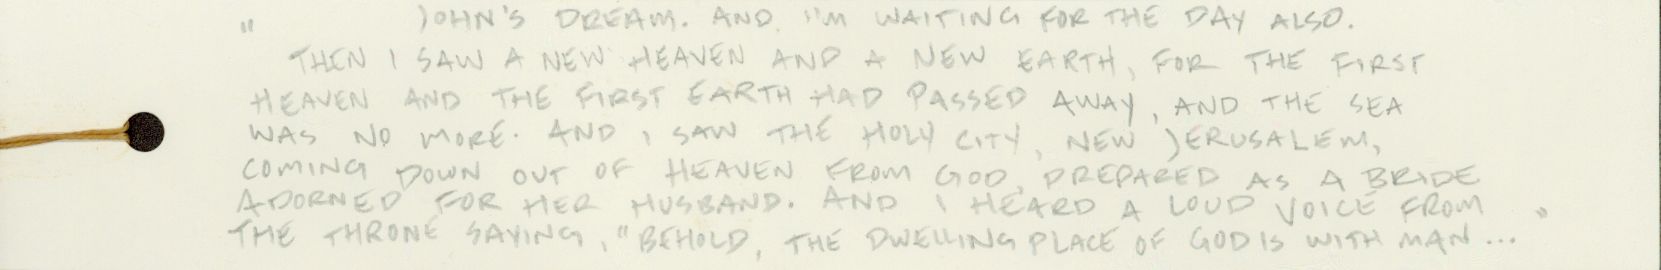 " JOHN'S DREAM. AND I'M WAITING FOR THE DAY ALSO.
THEN I SAW A NEW HEAVEN AND A NEW EARTH, FOR THE FIRST
HEAVEN AND THE FIRST EARTH HAD PASSED AWAY, AND THE SEA
WAS NO MORE. AND I SAW THE HOLY CITY, NEW JERUSALEM,
COMING DOWN OUT OF HEAVEN FROM GOD, PREPARED AS A BRIDE
ADORNED FOR HER HUSBAND. AND I HEARD A LOUD VOICE FROM "
THE THRONE SAYING, "BEHOLD, THE DWELLING PLACE OF GOD IS WITH MAN...